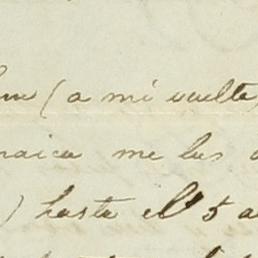 (a mi vuelta)
me las
) hasta el 5 a